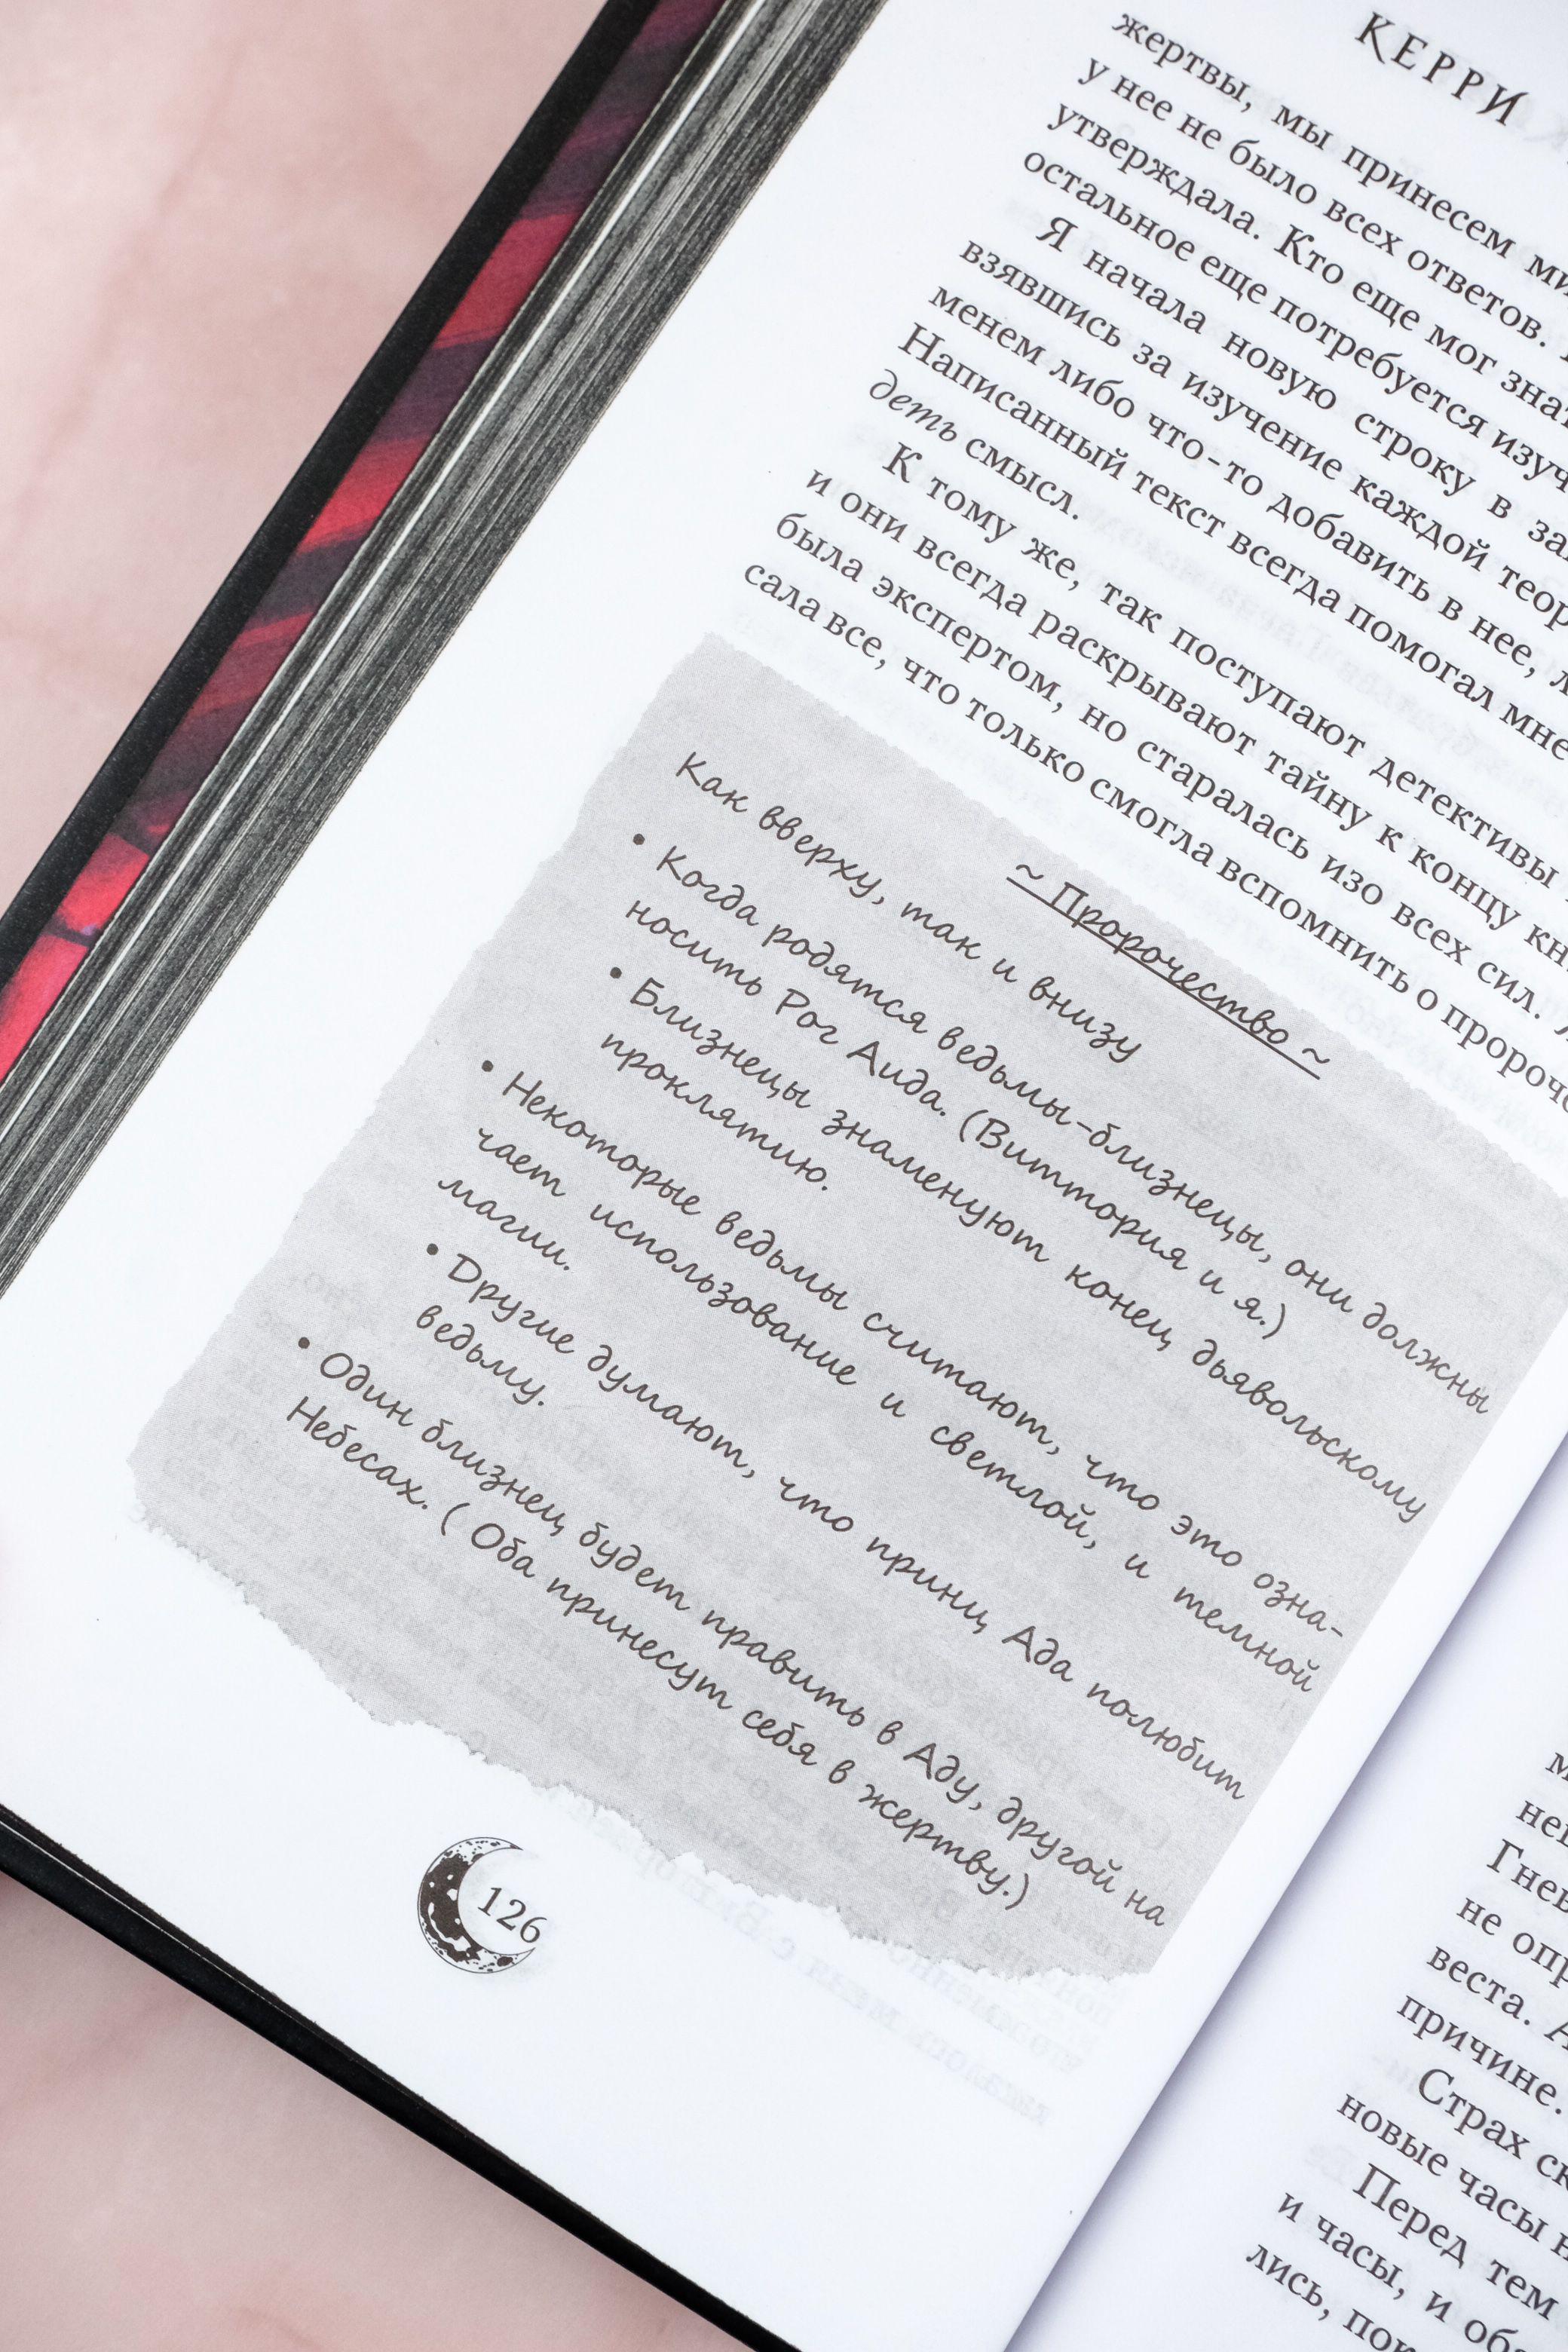 КЕРРИ
жертвы, мы принесем
у нее не было всех ответов.
утверждала. Кто еще мог
остальное еще потребуется
Я начала новую строку в
взявшись за изучение каждой
менем либо что-то добавить в нее,
Написанный текст всегда помогал мне
деть смысл.
К тому же, так поступают детективы
и они всегда раскрывают тайну к концу
была экспертом, но старалась изо всех сил.
сала все, что только смогла вспомнить о
~ Пророчество ~
Как вверху, так и внизу
• Когда родятся ведьмы-близнецы, они должны
носить Рог Аида. (Виттория и я.)
• Близнецы знаменуют конец дьявольскому
проклятию.
• Некоторые ведьмы считают, что это озна-
чает использование и светлой, и темной
магии.
• Другие думают, что принц Ада полюбит
ведьму.
• Один близнец будет править в Аду, другой на
Небесах. ( Оба принесут себя в жертву.)
126
Гнев
не
веста.
причине.
Страх
новые часы
Перед тем
и часы, и
лись,